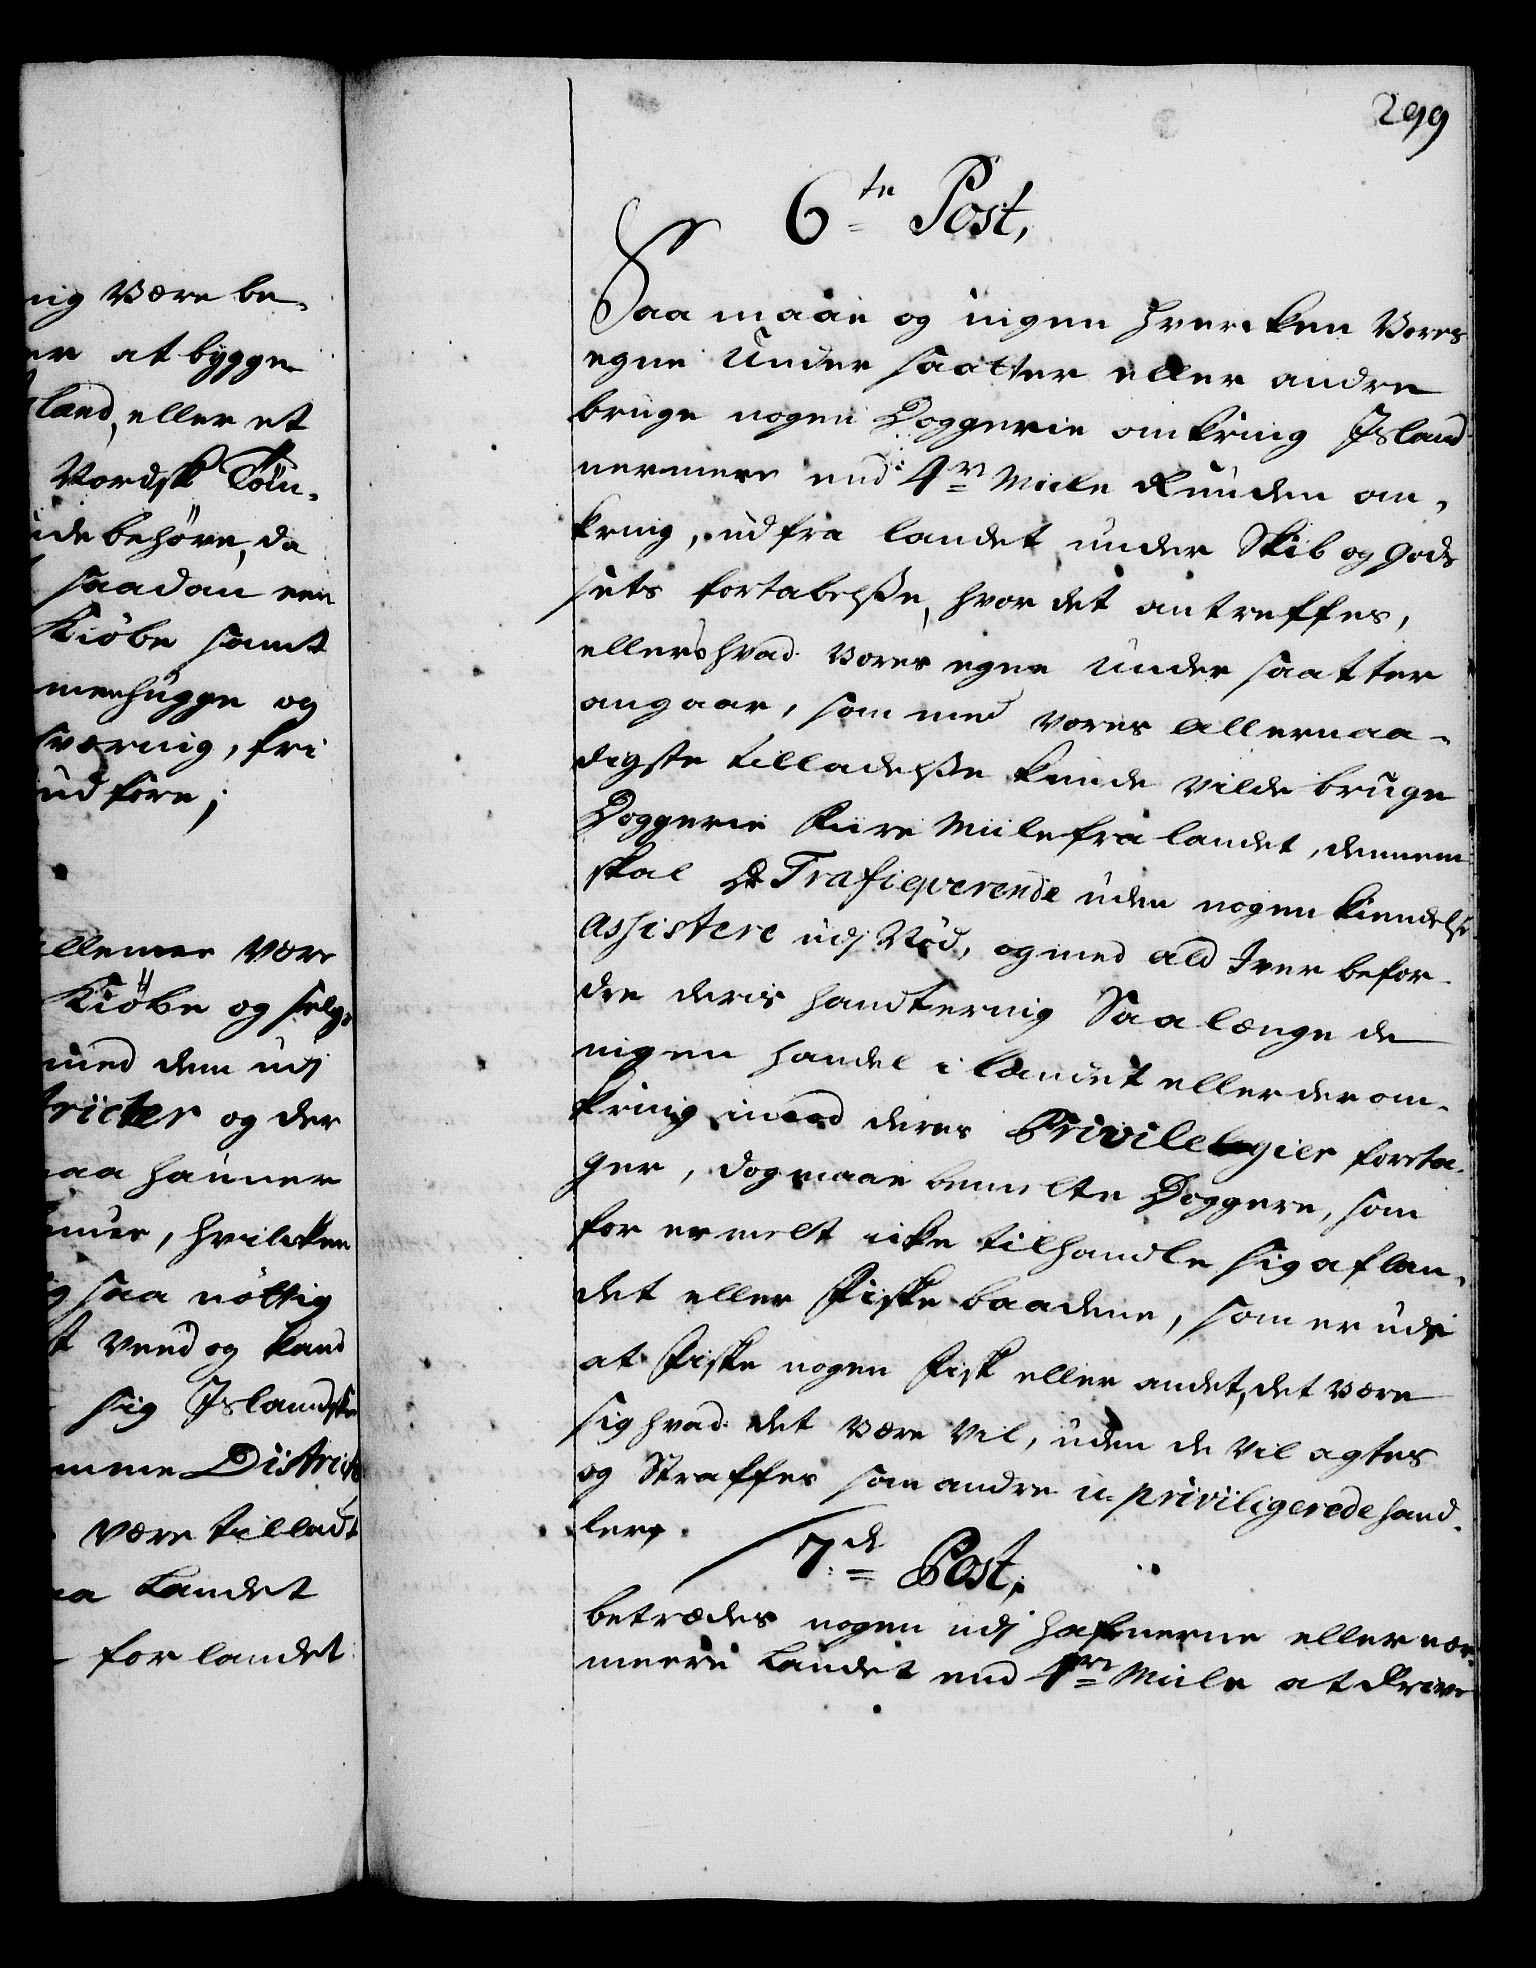 299
6te Post,
Saa maae og ingen hvercken Vores
egne Under saatter eller andre
bruge nogen Doggerie omkring Island
nermere end 4re Miile Runden om-
kring, ud fra landet under Skib og Gods
sets fortabelsse, hvor det antreffes,
ellers hvad Vores egne Under saatter
angaar, som med Vores Allernaa-
digste tilladelsse kunde Vilde bruge
Doggerie fiire Miile fra landet, dennem
skal De Trafiqverende uden nogen kiendelse
Assistere udj Nød, og med ald Iver befor-
dre deris handtering Saa længe de
ingen handel i landet eller der om-
kring imod deres Privilegier foreta-
ger, dog maae bemelte Doggere, som
for ermelt icke tilhandle sig af lan-
det eller Fiske baadene, som er ude
at Fiske nogen Fisk eller andet, det være
sig hvad det være Vil, uden de Vil agtes
og Straffes som andre u-priviligerede hand-
lere.
7de Post,
betrædes nogen udj hafnerne eller nær-
meere Landet end 4re Miile at drive
ing Være be-
er at bygge
land, eller et
Nordsk Tøm-
ide behøve, da
saadan een
Kiøbe samt
merhugge og
sværing, fri
ud føre;
illemer Være
Kiøbe og selge
med dem udj
tricter og der
paa hauner
muer, hvilcken
g saa nøttig
t Veed og kand
sig Islandske
mme District
Være tilladt
aa Landet
for landet